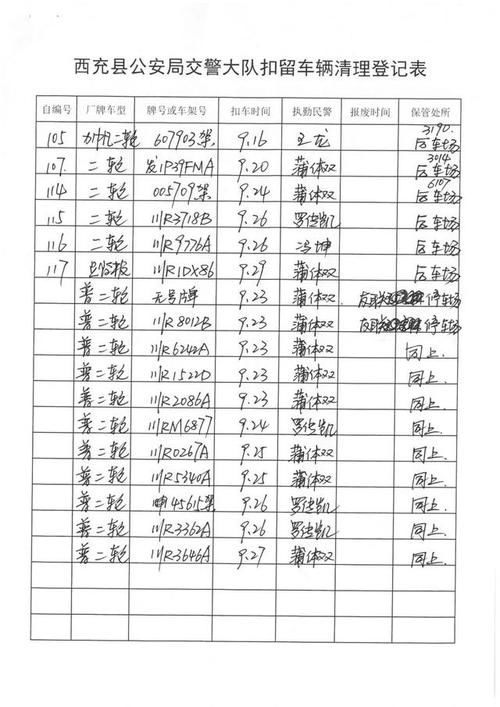 西充县公安局交警大队扣留车辆清理登记表
自编号 厂牌车型 牌号或车架号 扣车时间 执勤民警 报废时间 保管处所
105 二轮 607903架 9.16 王龙 3190. 后车场
107. 二轮 发1P39FMA 9.20 蒲体双 3014 后车场
114 二轮 005709架 9.24 蒲体双 6107 后车场
115 二轮 川R3718B 9.26 罗德凯 后车场
116 二轮 川R9776A 9.26 冯坤 后车场
117 川R1DX86 9.29 蒲体双 后车场
普二轮 无号牌 9.23 蒲体双 友联 停车场
普二轮 川R8012B 9.23 蒲体双 友联 停车场
普二轮 川R6242A 9.23 蒲体双 同上.
普二轮 川R1522D 9.23 蒲体双 同上.
普二轮 川R2086A 9.23 蒲体双 同上.
普二轮 川RM6877 9.24 罗德凯 同上.
普二轮 川R0267A 9.25 蒲体双 同上.
普二轮 川R5340A 9.25 蒲体双 同上.
普二轮 45615架 9.26 罗德凯 同上.
普二轮 川R3362A 9.26 罗德凯 同上.
普二轮 川R3646A 9.27 蒲体双 同上.